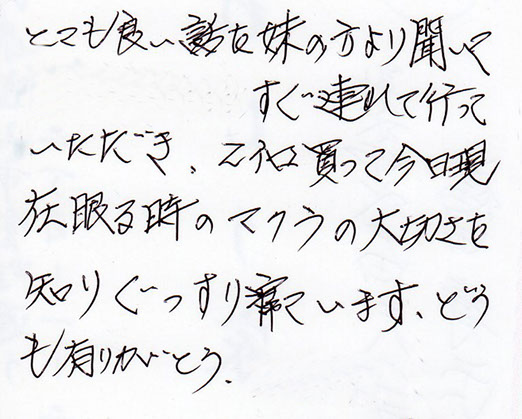 とても良い話を妹の方より聞いて
すぐ連れて行って
いただき、
買って今日現
在眠る時のマクラの大切さを
知りぐっすり寝ています、どう
も有りがとう.